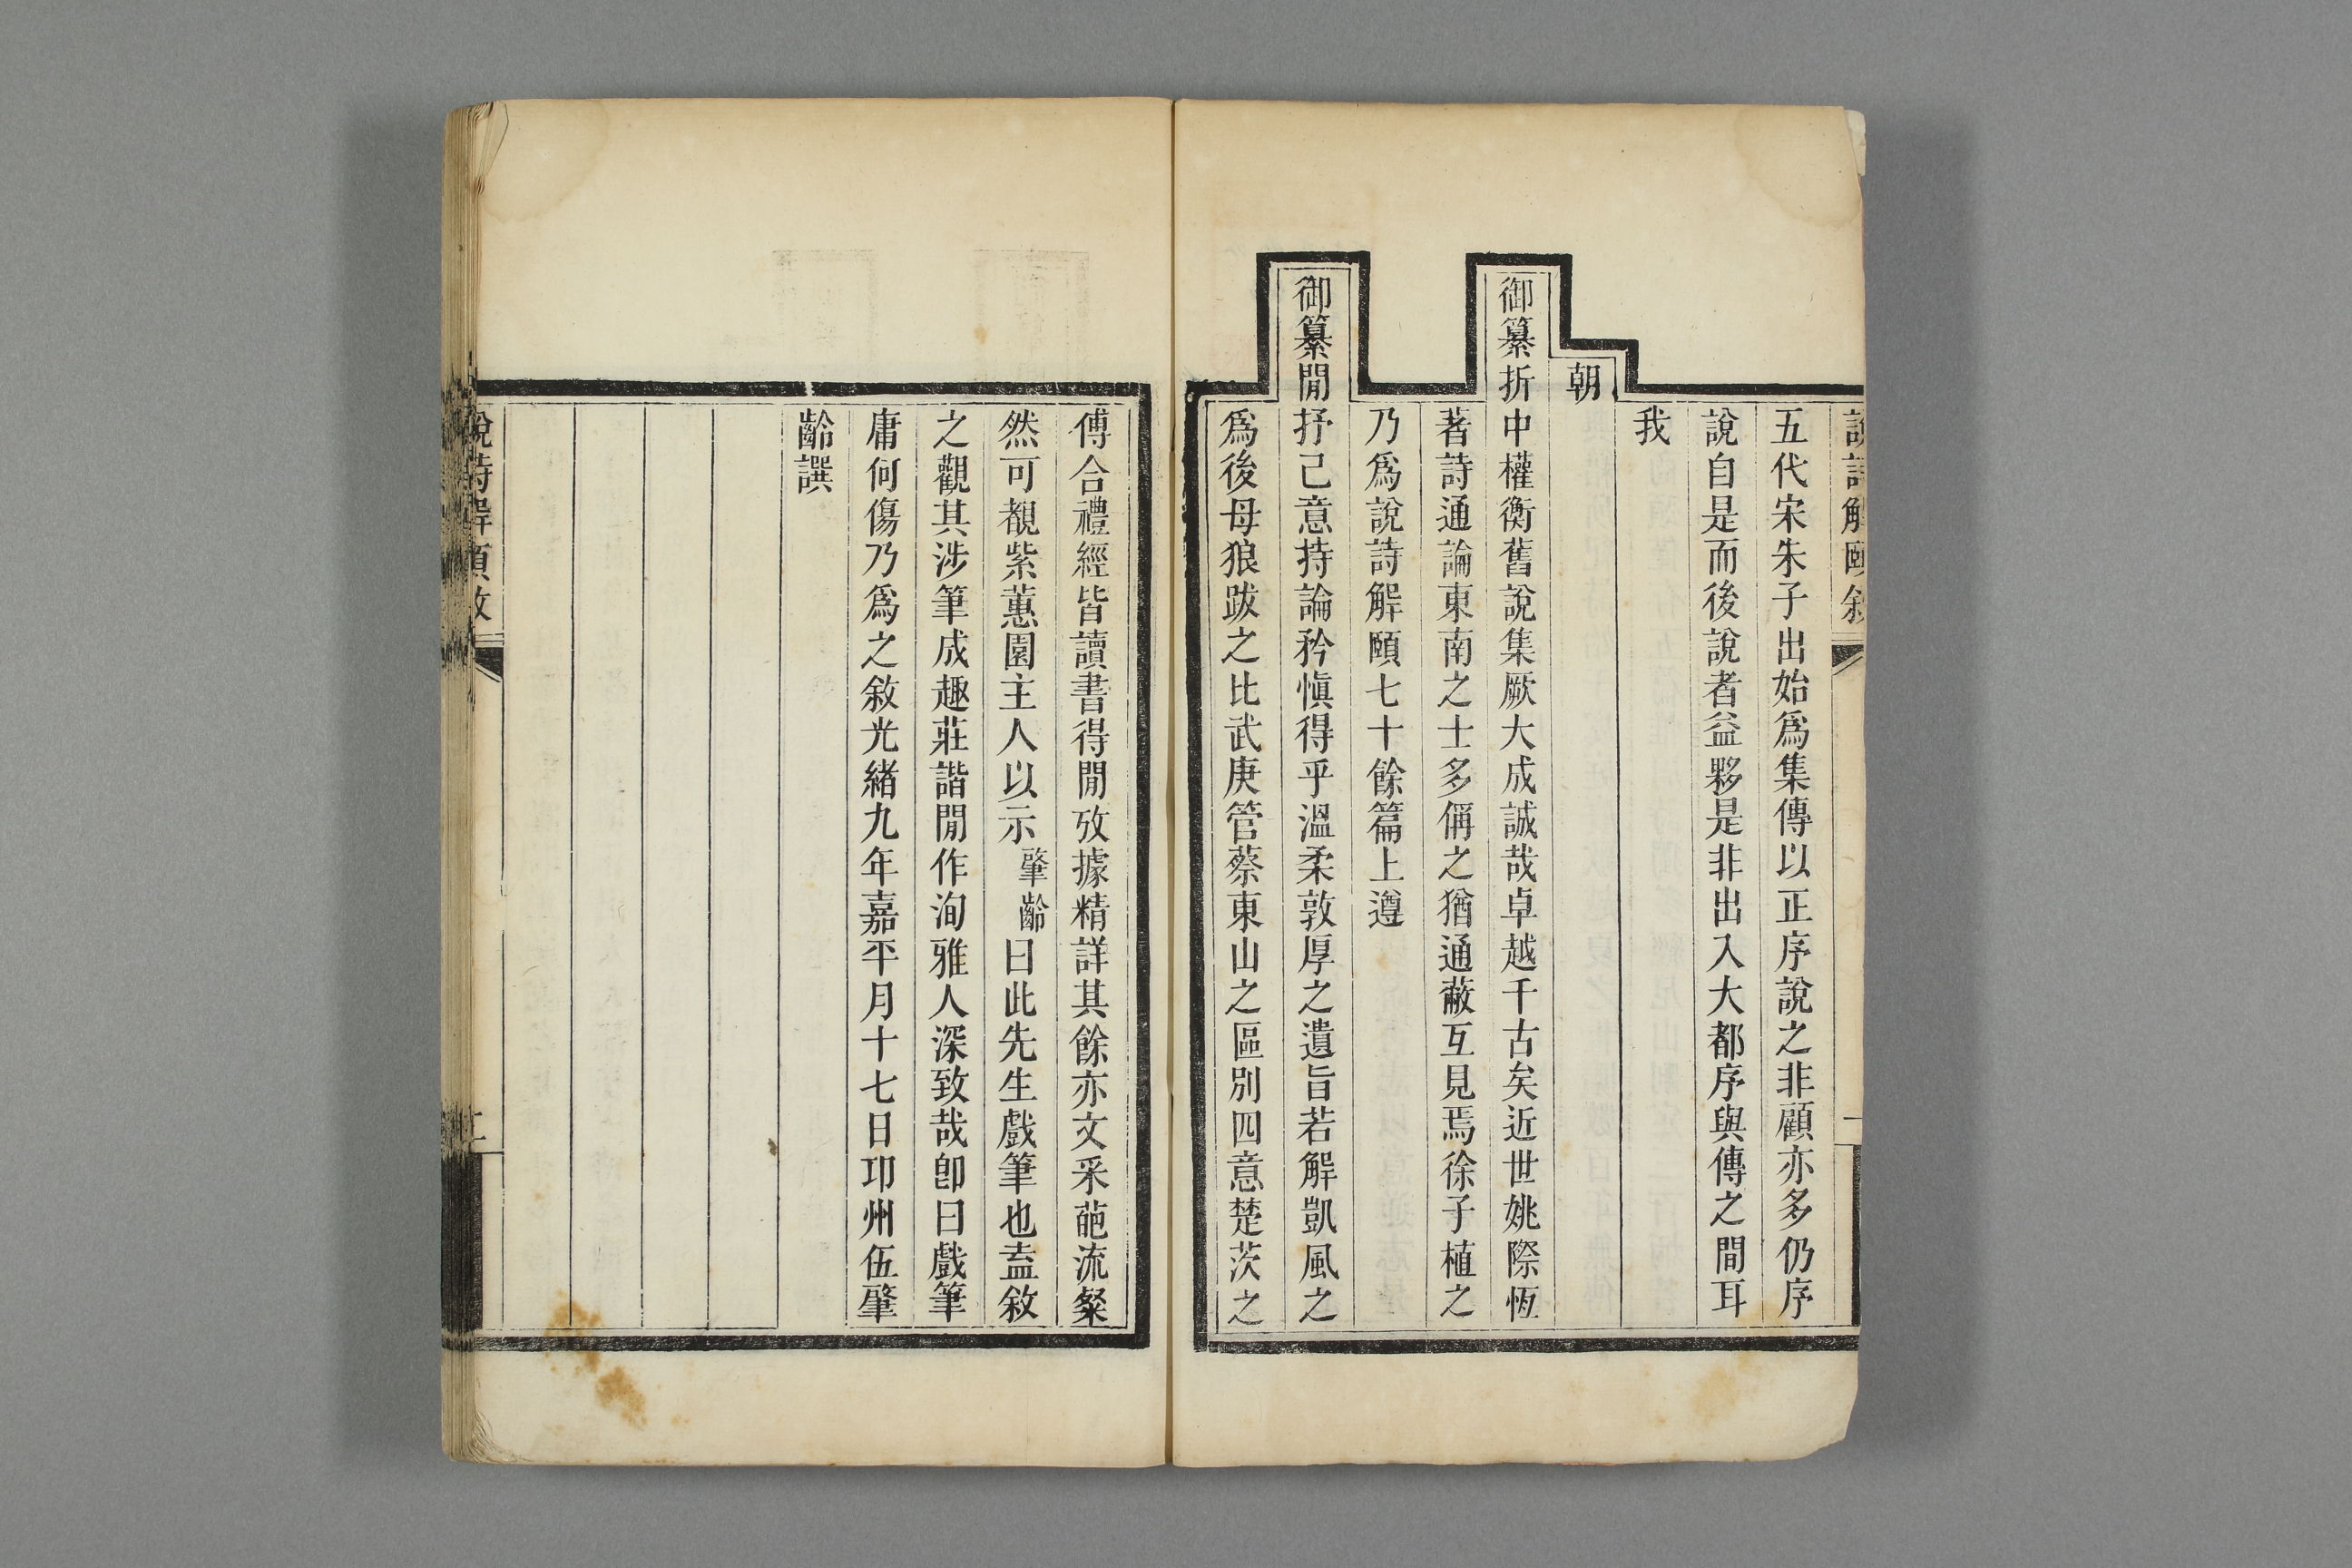 說詩解頤敘
一
五代宋朱子出始爲集傳以正序說之非顧亦多仍序
說自是而後說者益夥是非出入大都序與傳之間耳
我
朝
御纂折中權衡舊說集厥大成誠哉卓越千古矣近世姚際恆
著詩通論東南之士多偁之猶通蔽互見焉徐子植之
乃爲說詩解頤七十餘篇上遵
御纂閒抒己意持論矜愼得乎溫柔敦厚之遺旨若解凱風之
爲後母狼跋之比武庚管蔡東山之區別四意楚茨之
傅合禮經皆讀書得閒攷據精詳其餘亦文采葩流粲
然可覩紫蕙園主人以示肇齡曰此先生戲筆也盍敘
之觀其涉筆成趣莊諧閒作洵雅人深致哉卽曰戲筆
庸何傷乃爲之敘光緒九年嘉平月十七日邛州伍肇
齡譔
說詩解頤敘